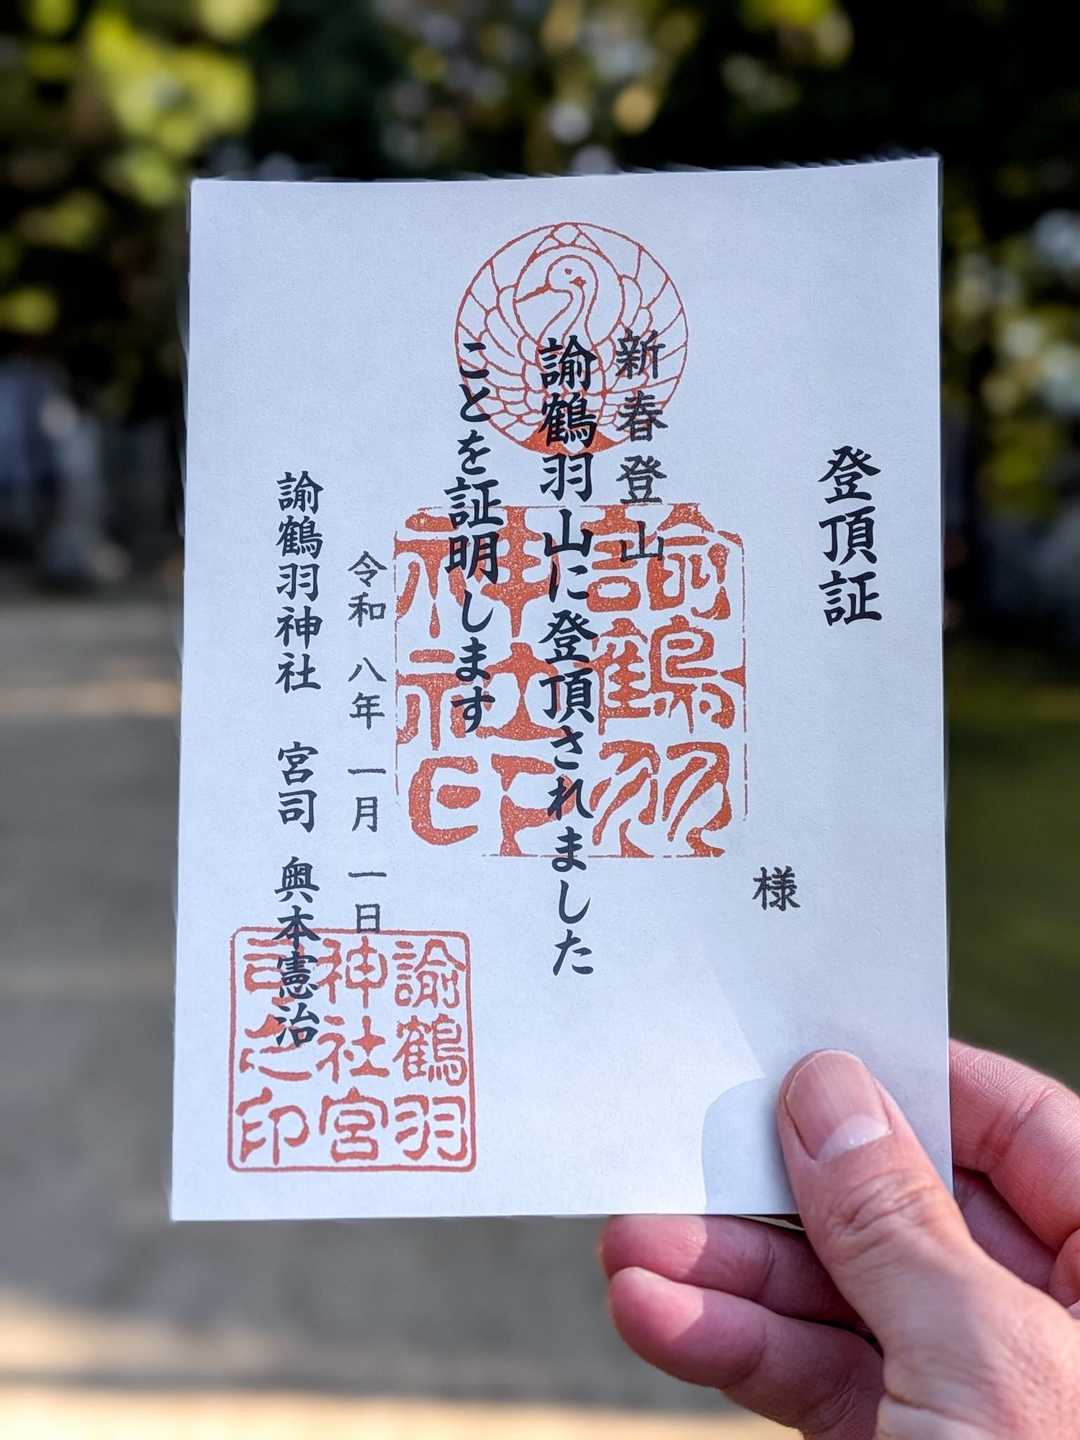 登頂証
様
新春登山
諭鶴羽山に登頂されました
ことを証明します
令和 八年 一月 一日
諭鶴羽神社 宮司 奥本憲治
諭鶴羽
神社印
諭鶴羽
神社宮
司之印